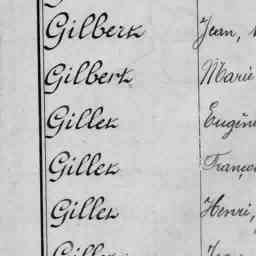 Gilbert Jean,
Gilbert Marie
Gillet Eugène
Gillet Franço
Gillet Henri,